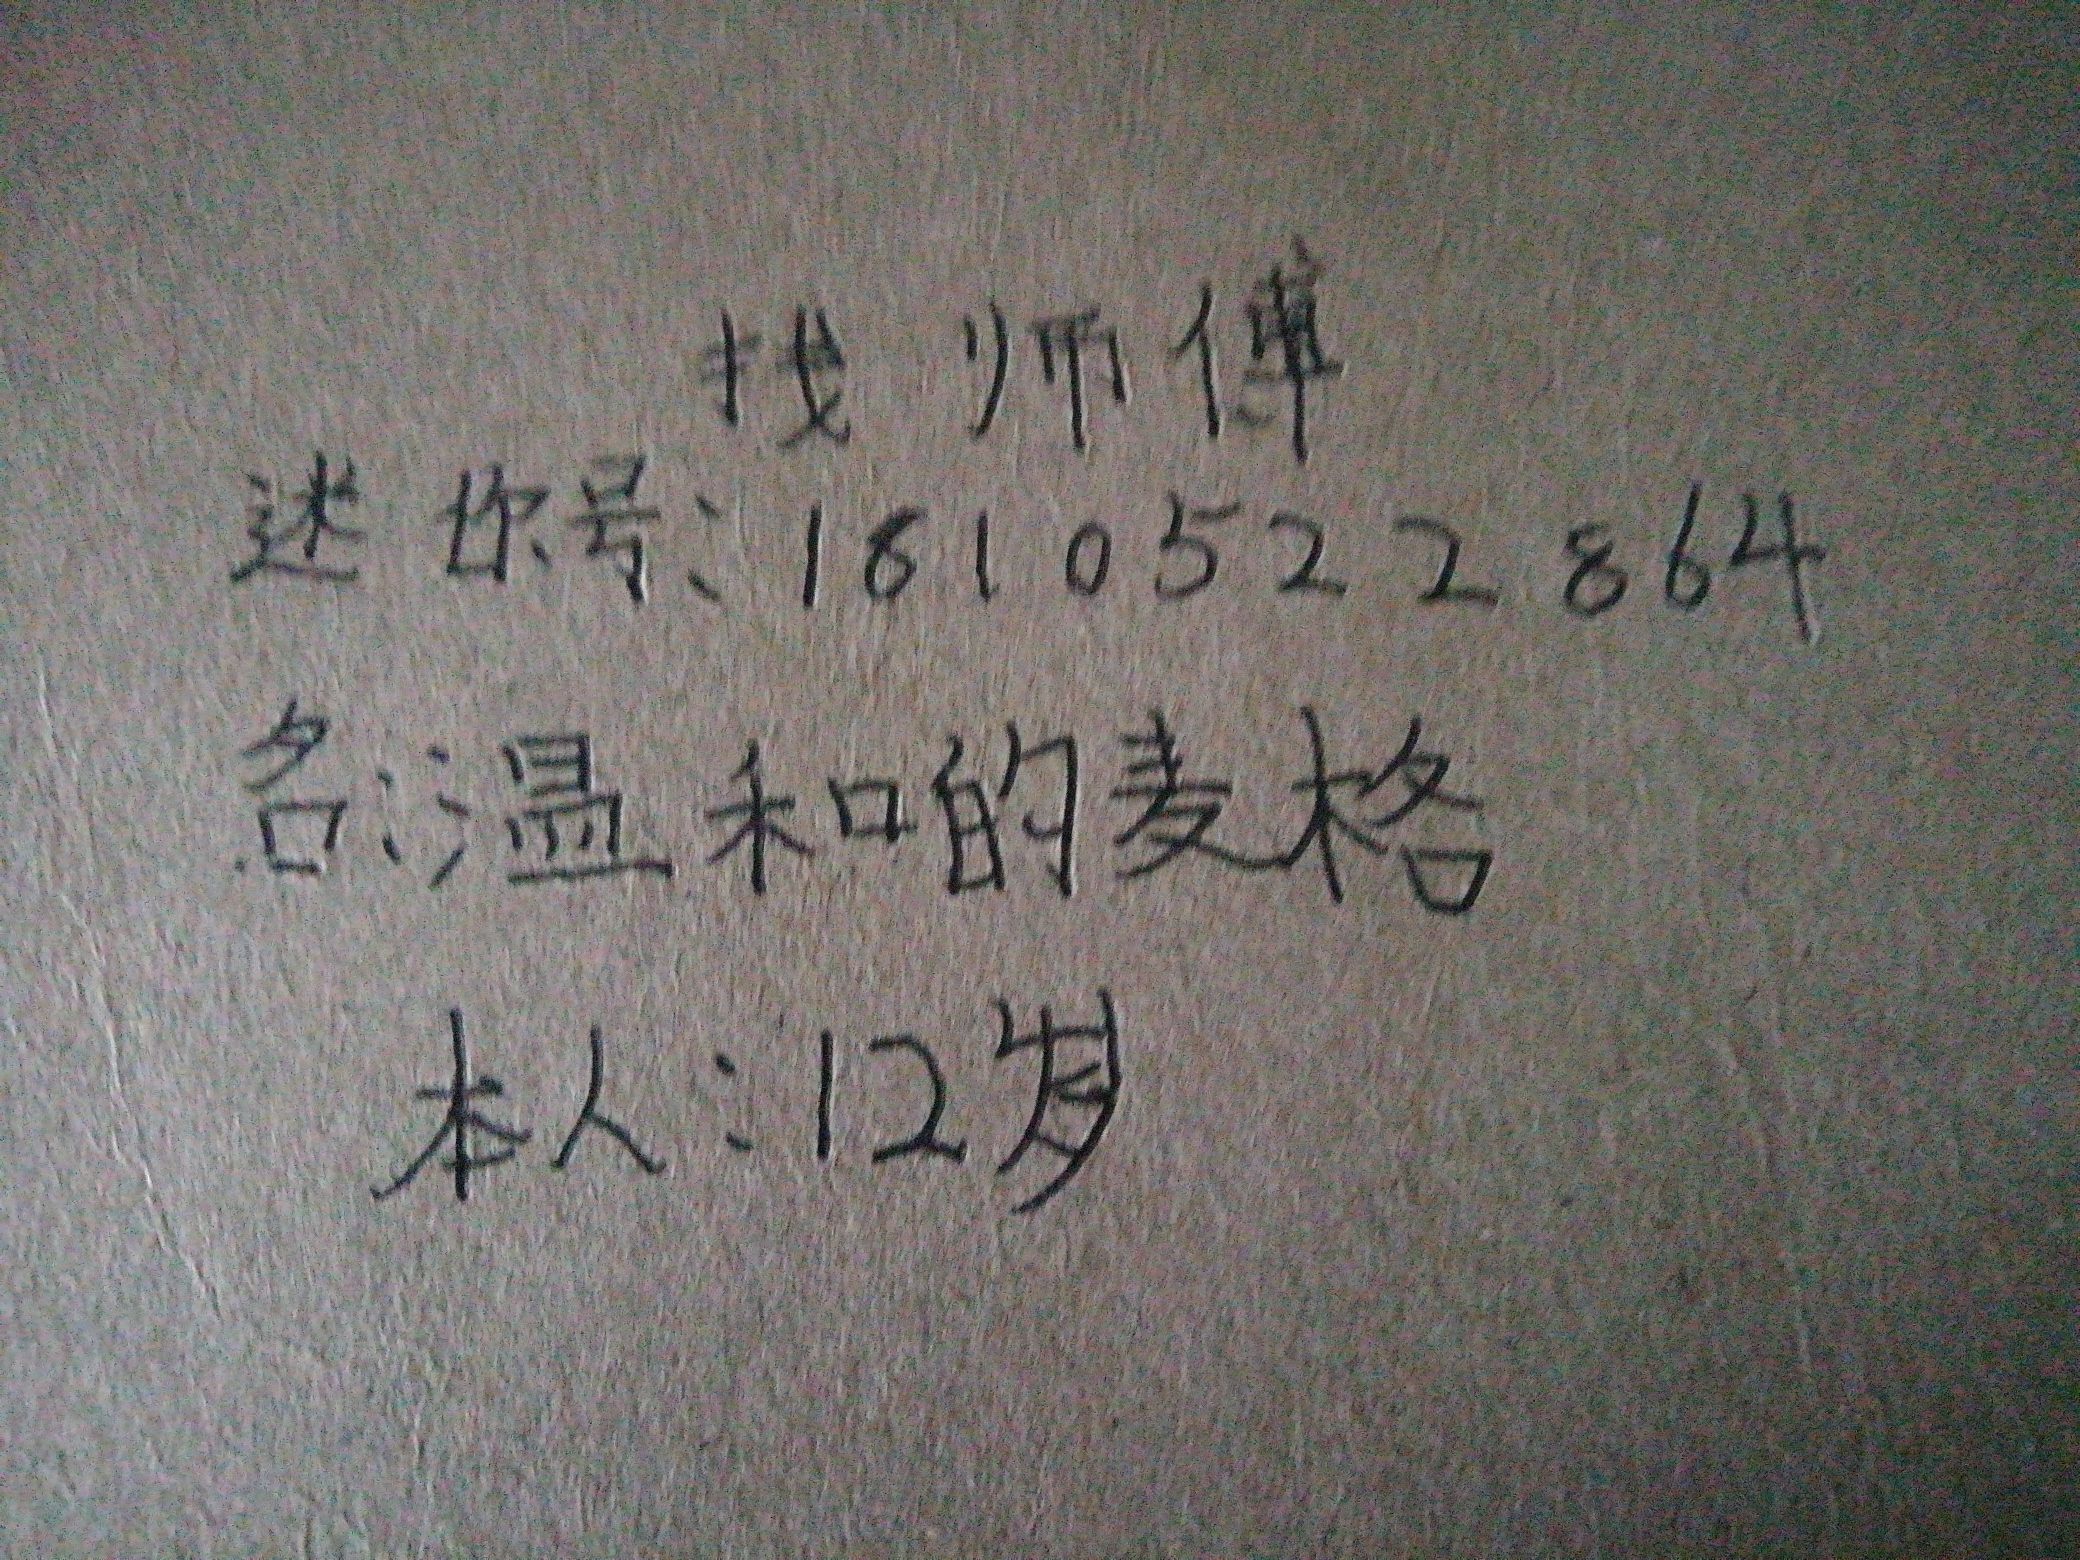 找师傅
迷你号:1810522864
名:温和的麦格
本人:12岁